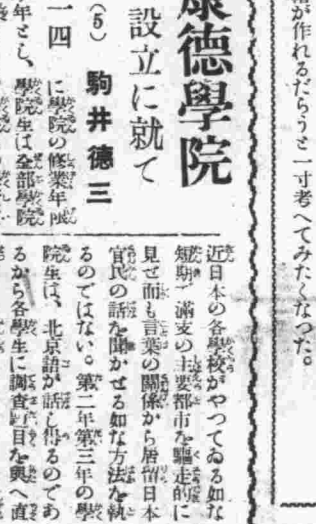 縮が作れるだらうと一寸考へてみたくなつた。
康德學院
設立に就て
(5)
駒井德三
一四
に學院の修業年限
年とし、學院生は全部學院
近日本の各學校がやつてゐる如な
短期で滿支の主要都市を驅走的に
見せ而も言葉の關係から居留日本
官民の話を聞かせる如な方法を執
るのではない。第二年第三年の學
院生は、北京語が話し得るのであ
るから各學生に調査題目を與へ直